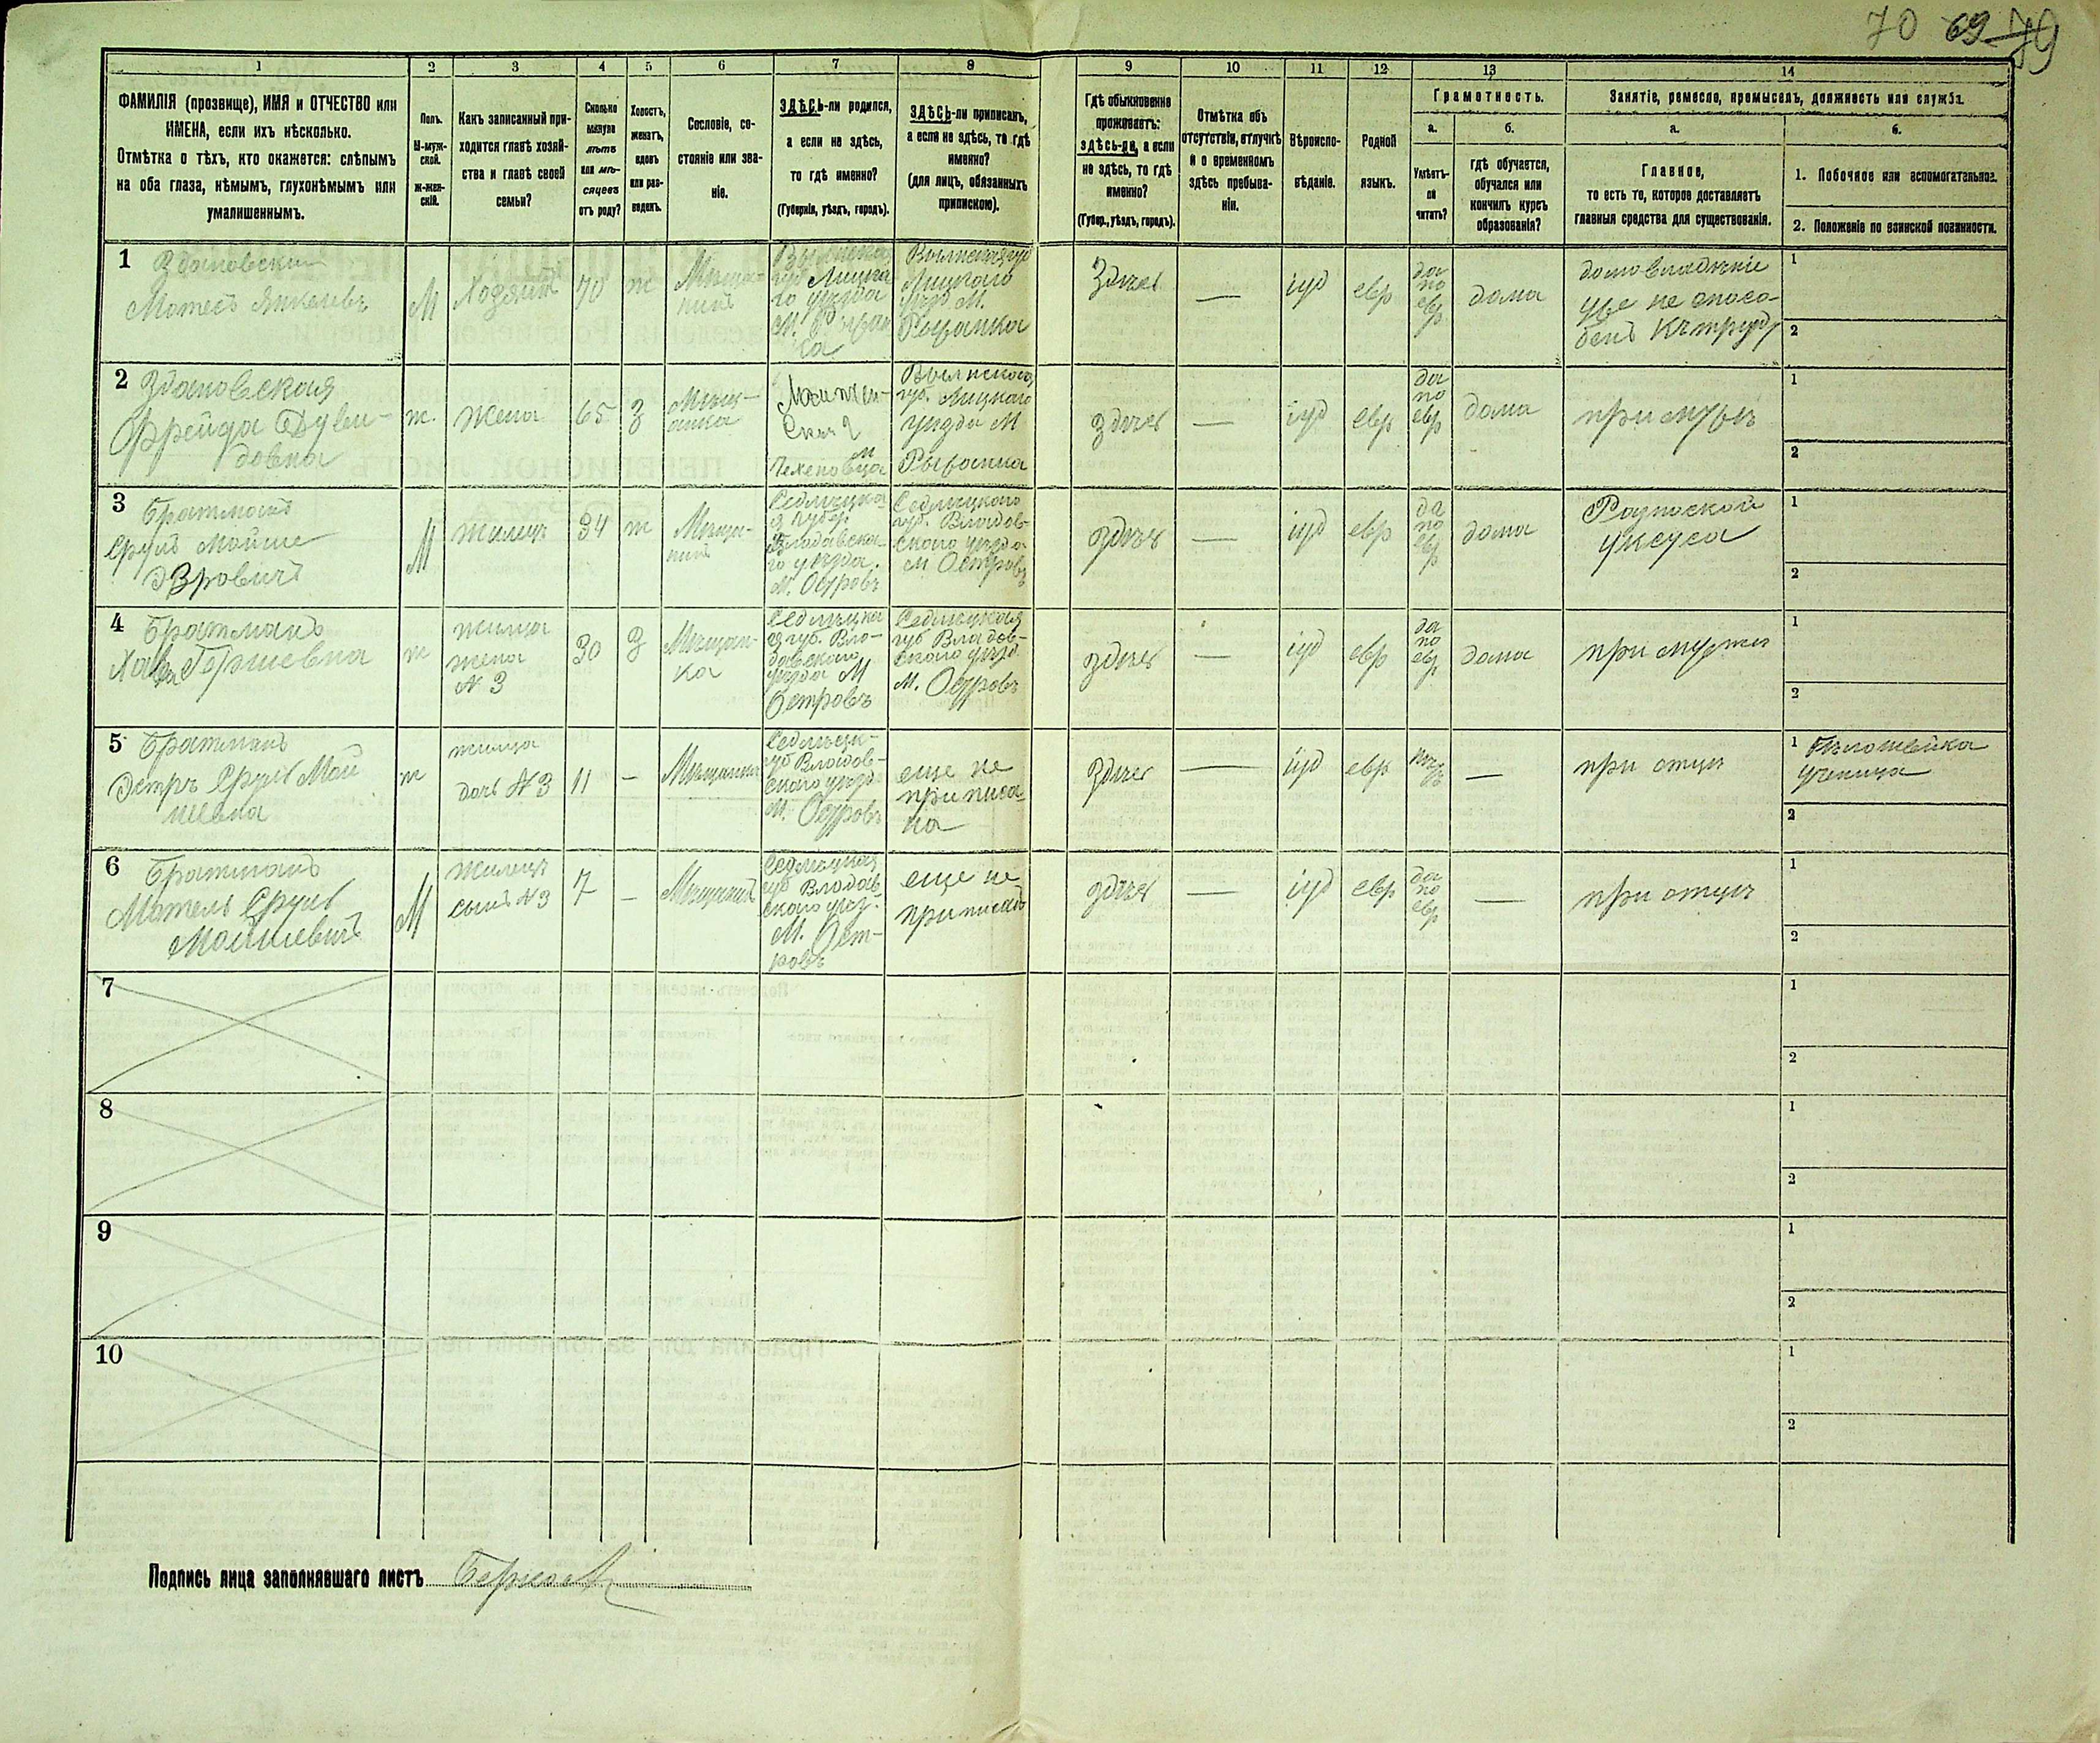 70 69 79
1 2 3 4 5 6 7 8 9 10 11 12 13 14
ФАМИЛІЯ (прозвище), ИМЯ и ОТЧЕСТВО или
ИМЕНА, если ихъ нѣсколько.
Отмѣтка о тѣхъ, кто окажется: слѣпымъ
на оба глаза, нѣмымъ, глухонѣмымъ или
умалишеннымъ.
Полъ.
М-муж-
ской.
ж-жен-
скій.
Какъ записанный при-
ходится главѣ хозяй-
ства и главѣ своей
семьи?
Сколько
минуло
лѣтъ
или мѣ-
сяцевъ
отъ роду?
Холостъ,
женатъ,
вдовъ
или раз-
веденъ.
Сословіе, со-
стояніе или зва-
ніе.
ЗДѢСЬ-ли родился,
а если не здѣсь,
то гдѣ именно?
(Губернія, уѣздъ, городъ).
ЗДѢСЬ-ли приписанъ,
а если не здѣсь, то гдѣ
именно?
(для лицъ, обязанныхъ
припискою).
Гдѣ обыкновенно
проживаетъ:
здѣсь-ли, а если
не здѣсь, то гдѣ
именно?
(Губер., уѣздъ, городъ).
Отмѣтка объ
отсутствіи, отлучкѣ
и о временномъ
здѣсь пребыва-
ніи.
Вѣроиспо-
вѣданіе.
Родной
языкъ.
Грамотность.
а.
Умѣетъ-
ли
читать?
б.
гдѣ обучается,
обучался или
кончилъ курсъ
образованія?
Занятіе, ремесло, промыселъ, должность или служба.
а.
Главное,
то есть то, которое доставляетъ
главныя средства для существованія.
б.
1. Побочное или вспомогательное.
2. Положеніе по воинской повинности.
1
Здановскій
Мотесъ Янкелевъ
М
Хозяинъ
70
ж
Мѣща-
нинъ
губ Луцка
го уѣзда
М. Рожи
Волынская губ
Луцкаго
уѣзд М.
Здѣсь
—
іуд
евр
да
по
евр
дома
домовладѣніе
уже не спосо-
бенъ къ труду
1
2
2
Здановская
Фрейда Дуви-
довна
ж.
Жена
65
З
Мѣщ-
анка
губ. Луцкаго
уѣзда М
здѣсь
—
іуд
евр
да
по
евр
дома
при мужѣ
1
2
3
Братманъ
Срулъ Мойше
Эзровичъ
М
Жилецъ
34
ж
Мѣща-
нинъ
Сѣдлецка
я губер.
Влодавска-
го уѣзда.
М. Островъ
Седлецкого
губ. Владов-
ского уѣзда
М Островъ
здѣсь
—
іуд
евр
да
по
евр
дома
уксуса
1
2
4
Братманъ
Хава Гершевна
ж
жилица
жена
N 3
30
З
Мѣщан-
ка
Сѣдлецка
я губ. Вло-
давскаго
уѣзда М
Островъ
Седлецкая
губ Владов-
ского уѣзд
М. Островъ
здѣсь
—
іуд
евр
да
по
евр
дома
при мужѣ
1
2
5
Братманъ
Эстръ Срулъ Мой
шевна
ж
жилица
дочь N 3
11
—
Мѣщанка
Седлецк-
губ Владов-
ского уѣзд
М. Островъ
еще не
приписа-
на
здѣсь
—
іуд
евр
—
при отцѣ
1 Бѣлошвейка
ученица
2
6
Братманъ
Мотель Срулъ
Мойшевичъ
М
Жилецъ
сынъ N 3
7
—
Мѣщанинъ
Седлецкая
губ Владов
ского уѣз.
М. Ост-
ровъ
еще не
приписанъ
здѣсь
—
іуд
евр
да
по
евр
—
при отцѣ
1
2
7
1
2
8
1
2
9
1
2
10
1
2
Подпись лица заполнявшаго листъ